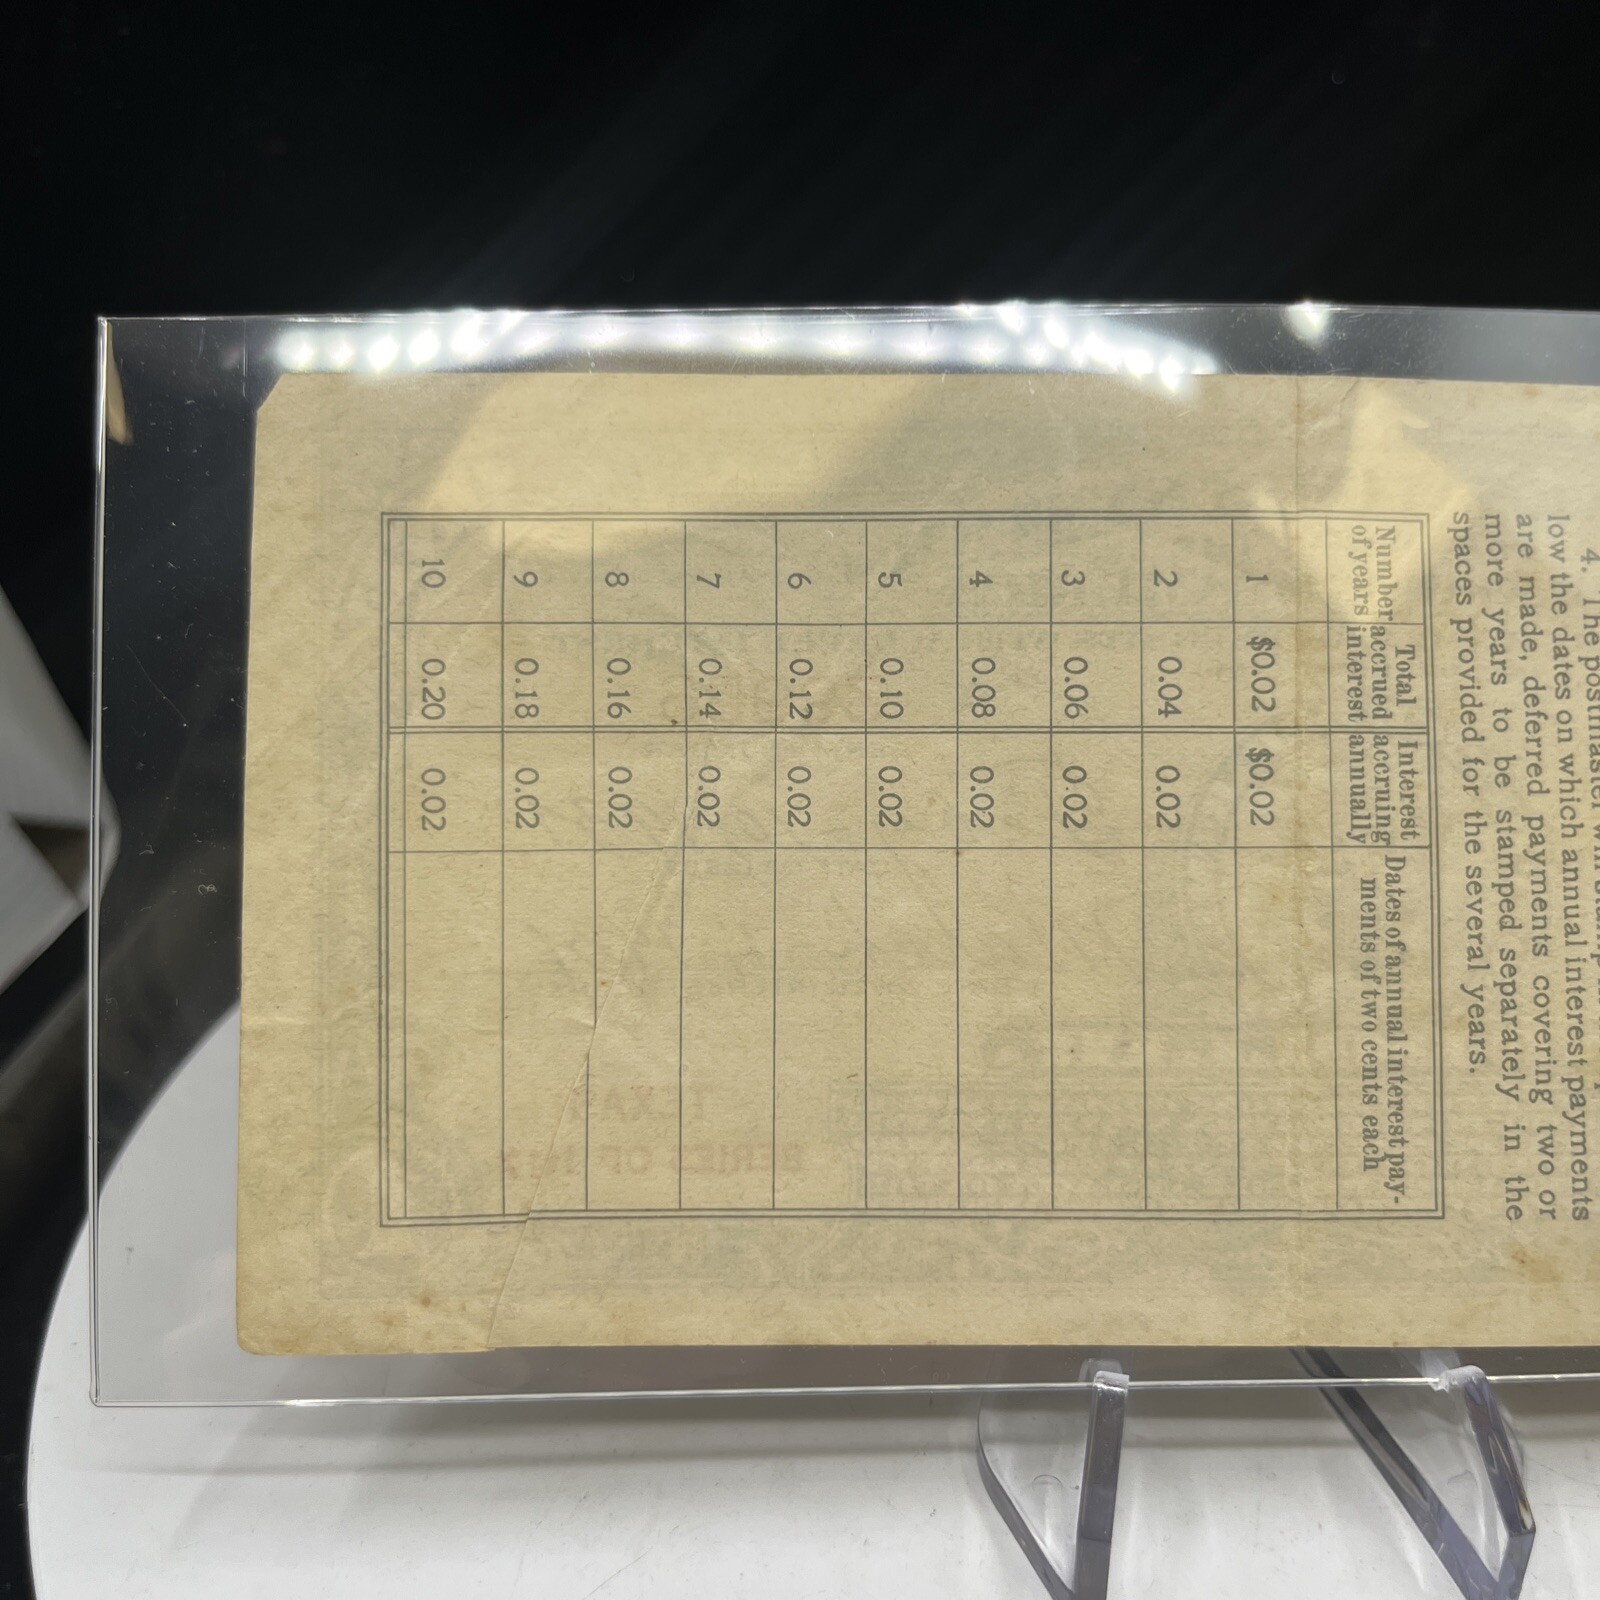 4. The postmaster will stamp
low the dates on which annual interest payments
are made, deferred payments covering two or
more years to be stamped separately in the
spaces provided for the several years.
Number of years | Total accrued interest | Interest accruing annually | Dates of annual interest pay-
ments of two cents each
1 $0.02 $0.02
2 0.04 0.02
3 0.06 0.02
4 0.08 0.02
5 0.10 0.02
6 0.12 0.02
7 0.14 0.02
8 0.16 0.02
9 0.18 0.02
10 0.20 0.02